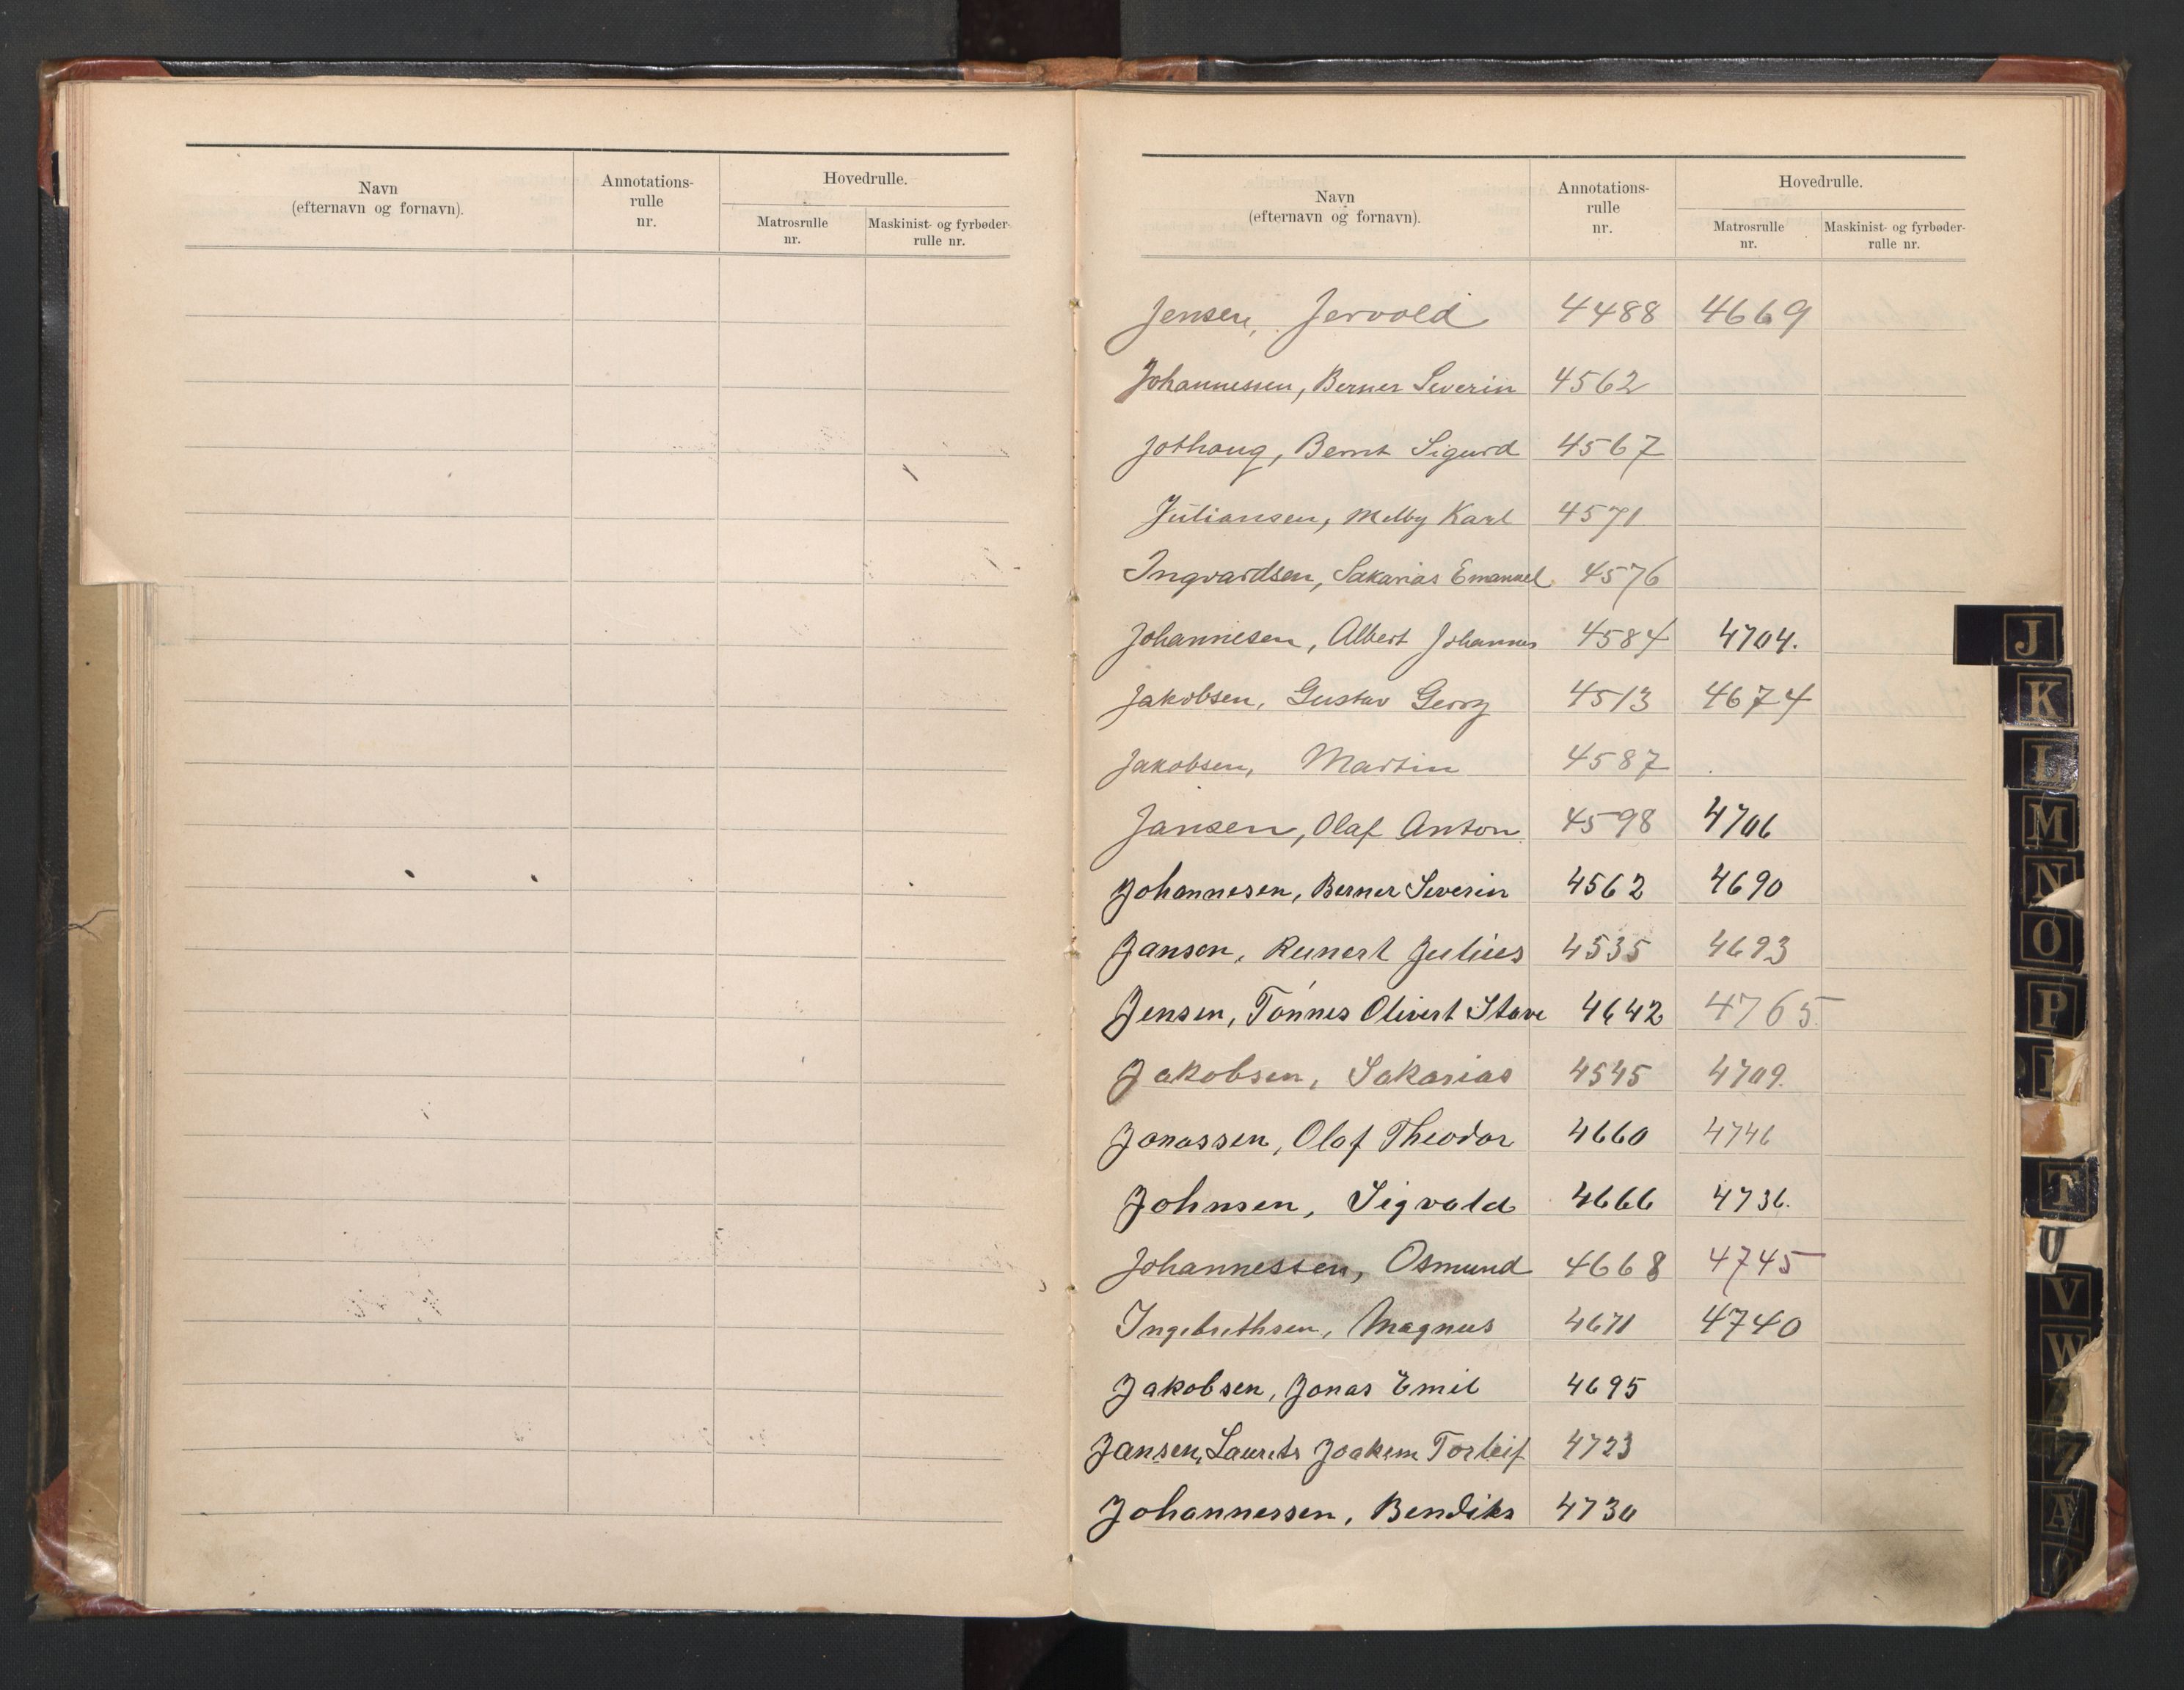 Navn
(efternavn og fornavn).
Annotations-
rulle
nr.
Hovedrulle.
Matrosrulle
nr.
Maskinist- og fyrbøder-
rulle nr.
Navn
(efternavn og fornavn).
Annotations-
rulle
nr.
Hovedrulle.
Matrosrulle
nr.
Maskinist- og fyrbøder-
rulle nr.
Jensen, Jervold 4488 4669
Johannessen, Berner Severin 4562
Jothaug, Bernt Sigurd 4567
Juliansen, Melby Karl 4571
Ingvardsen, Sakarias Emanuel 4576
Johannesen, Albert Johannes 4584 4704.
Jakobsen, Gustav Georg 4513 4674
Jakobsen, Martin 4587
Jansen, Olaf Anton 4598 4706
Johannesen, Berner Severin 4562 4690
Jansen, Reinert Julius 4535 4693
Jensen, Tönnes Olivert Stave 4642 4765
Jakobsen, Sakarias 4545 4709.
Jonassen, Olaf Theodor 4660 4746
Johnsen, Sigvald 4666 4736.
Johannessen, Osmund 4668 4745
Ingebrethsen, Magnus 4671 4740
Jakobsen, Jonas Emil 4695
Jansen, Laurits Joakim Torleif 4723
Johannessen, Bendiks 4730
J
K
L
M
N
O
P
T
U
V
W
Z
Æ